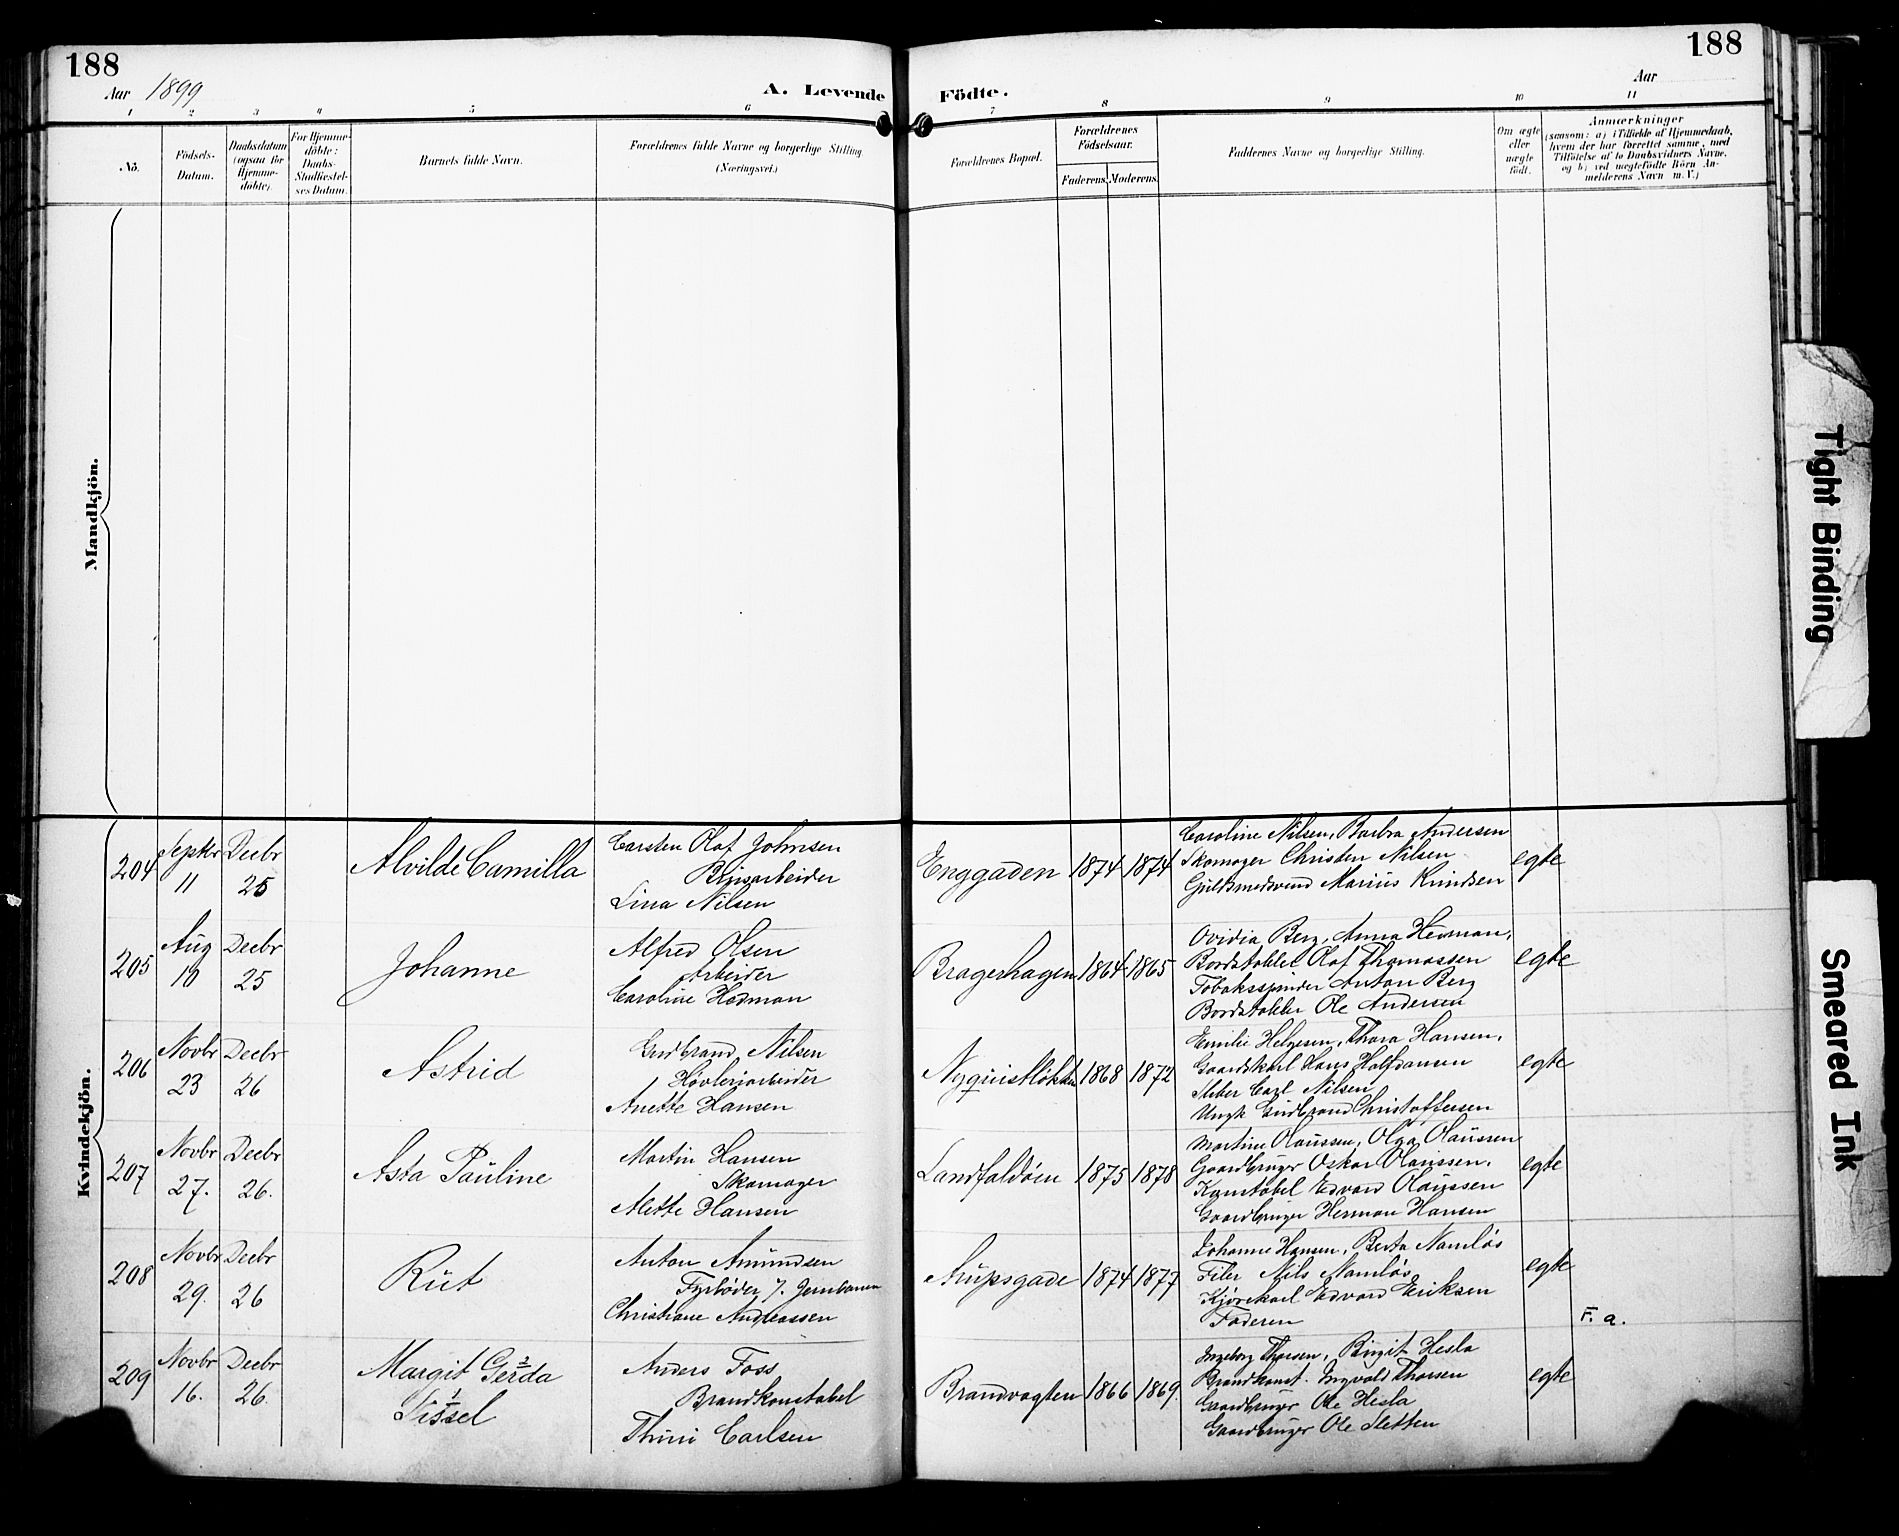 188
188
Aar 1899
A. Levende Födte.
Aar
1 2 3 4 5 6 7 8 9 10 11
No.
Födsels-Datum.
Daabsdatum (ogsaa for Hjemme-døbte).
For Hjemme-døbte: Daabs-Stadfæstel-ses Datum.
Barnets fulde Navn.
Forældrenes fulde Navne og borgerlige Stilling (Næringsvei.)
Forældrenes Bopæl.
Forældrenes Födselsaar.
Faderens. Moderens.
Faddernes Navne og borgerlige Stilling.
Om ægte eller uægte født.
Anmærkninger
(saasom: a) i Tilfælde af Hjemmedaab, hvem der har forrettet samme, med Tilföielse af to Daabsvidners Navne. og b) ved uægtefödte Börn Anmelderens Navn m.V.)
Mandkjön.
Kvindekjön.
204 Septbr 11 Decbr 25 Alvilde Camilla
Carsten Olaf Johnsen
Brugsarbeider
Lina Nilsen
Enggaden 1874 1874
Caroline Nilsen, Barbra Andersen
Skomager Christen Nilsen
Guldsmedsvend Marius Knudsen
egte
205 Aug 10 Decbr 25 Johanne
Alfred Olsen
Arbeider
Caroline Hedman
Bragerhagen 1864 1865
Ovidia Berg, Anna Hedman,
Bordstabler Olaf Thomassen
Tobaksspinder Anton Berg
Bordstabler Ole Andersen
egte
206 Novbr 23 Decbr 26 Astrid
Gudbrand Nilsen
Høvleriarbeider
Anette Hansen
Nyquistløkken 1868 1872
Emilie Helgesen, Thora Hansen,
Gaardskarl Hans Halfdansen
Carl Nilsen
Ungk Gudbrand Christoffersen
egte
207 Novbr 27. Decbr 26. Asta Pauline
Martin Hansen
Skomager
Mette Hansen
Landfaldøen 1875 1878
Martine Olaussen, Olga Olaussen
Gaardbruger Oskar Olaussen.
Konstabel Edvard Olaussen
Gaardbruger Herman Hansen
egte
208 Novbr 29. Decbr 26 Rut
Anton Amundsen
Fyrbøder v. Jernbanen
Christiane Andreassen
Arupsgade 1874 1877
Johanne Hansen, Berta Namløs
Filer Nils Namløs
Kjørekarl Edvard Eriksen
Faderen
egte
F. a.
209 Novbr 16. Decbr 26. Margit Gerda
2
1
Sissel
Anders Foss
Brandkonstabel
Thrini Carlsen
Brandvagten 1866 1869
Ingeborg Thorsen, Birgit Hesla
Brandkonst. Ingvald Thorsen
Gaardbruger Ole Hesla
Gaardbruger Ole Sletten
egte
Tight Binding
Smeared Ink